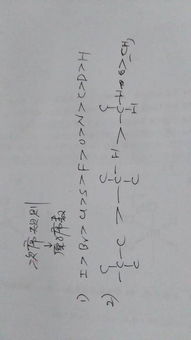 次序规则
↓
原子序数
1) I > Br > Cl > S > F > O > N > C > D > H
2) -C-C > -C-H > -C-H > CH3
C C C
C C H